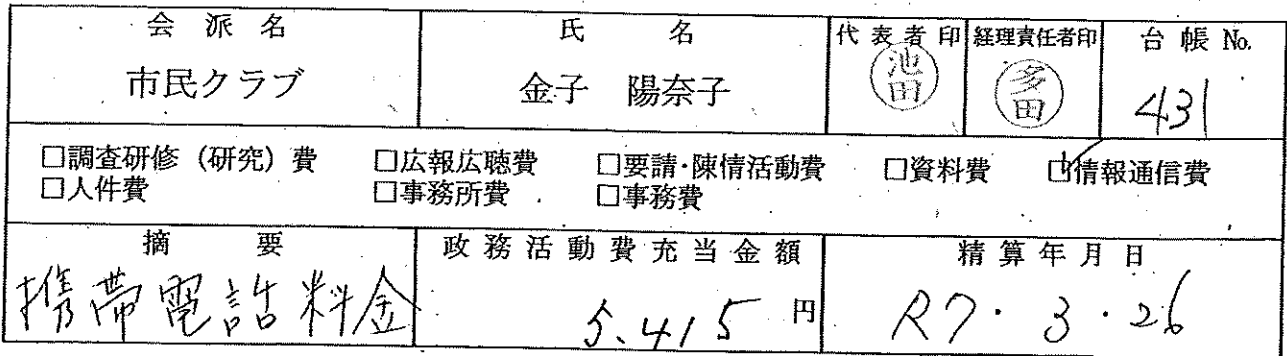 会派名 氏名 代表者印 経理責任者印 台帳 No.
市民クラブ 金子 陽奈子 池田 多田 431
□調査研修(研究)費 □広報広聴費 □要請・陳情活動費 □資料費 ☑情報通信費
□人件費 □事務所費 □事務費
摘要 政務活動費充当金額 精算年月日
携帯電話料金 5,415 円 R7・3・26